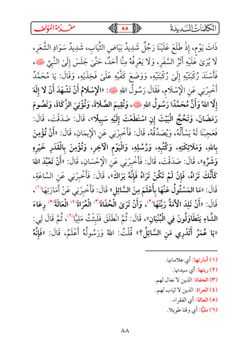 الكلمات السديدة ٨٨ مقدمة المؤلف
ذَاتَ يَوْمٍ، إِذْ طَلَعَ عَلَيْنَا رَجُلٌ شَدِيدُ بَيَاضِ الثِّيَابِ، شَدِيدُ سَوَادِ الشَّعَرِ،
لَا يُرَى عَلَيْهِ أَثَرُ السَّفَرِ، وَلَا يَعْرِفُهُ مِنَّا أَحَدٌ، حَتَّى جَلَسَ إِلَى النَّبِيِّ ﷺ،
فَأَسْنَدَ رُكْبَتَيْهِ إِلَى رُكْبَتَيْهِ، وَوَضَعَ كَفَّيْهِ عَلَى فَخِذَيْهِ، وَقَالَ: يَا مُحَمَّدُ
أَخْبِرْنِي عَنِ الْإِسْلَامِ، فَقَالَ رَسُولُ اللهِ ﷺ: «الْإِسْلَامُ أَنْ تَشْهَدَ أَنْ لَا إِلَهَ
إِلَّا اللهُ وَأَنَّ مُحَمَّدًا رَسُولُ اللهِ ﷺ، وَتُقِيمَ الصَّلَاةَ، وَتُؤْتِيَ الزَّكَاةَ، وَتَصُومَ
رَمَضَانَ، وَتَحُجَّ الْبَيْتَ إِنِ اسْتَطَعْتَ إِلَيْهِ سَبِيلًا»، قَالَ: صَدَقْتَ، قَالَ:
فَعَجِبْنَا لَهُ يَسْأَلُهُ، وَيُصَدِّقُهُ، قَالَ: فَأَخْبِرْنِي عَنِ الْإِيمَانِ، قَالَ: «أَنْ تُؤْمِنَ
بِاللهِ، وَمَلَائِكَتِهِ، وَكُتُبِهِ، وَرُسُلِهِ، وَالْيَوْمِ الْآخِرِ، وَتُؤْمِنَ بِالْقَدَرِ خَيْرِهِ
وَشَرِّهِ»، قَالَ: صَدَقْتَ، قَالَ: فَأَخْبِرْنِي عَنِ الْإِحْسَانِ، قَالَ: «أَنْ تَعْبُدَ اللهَ
كَأَنَّكَ تَرَاهُ، فَإِنْ لَمْ تَكُنْ تَرَاهُ فَإِنَّهُ يَرَاكَ»، قَالَ: فَأَخْبِرْنِي عَنِ السَّاعَةِ،
قَالَ: «مَا الْمَسْئُولُ عَنْهَا بِأَعْلَمَ مِنَ السَّائِلِ» قَالَ: فَأَخْبِرْنِي عَنْ أَمَارَتِهَا(١)،
قَالَ: «أَنْ تَلِدَ الْأَمَةُ رَبَّتَهَا(٢)، وَأَنْ تَرَى الْحُفَاةَ(٣) الْعُرَاةَ(٤) الْعَالَةَ(٥) رِعَاءَ
الشَّاءِ يَتَطَاوَلُونَ فِي الْبُنْيَانِ»، قَالَ: ثُمَّ انْطَلَقَ فَلَبِثْتُ مَلِيًّا(٦)، ثُمَّ قَالَ لِي:
«يَا عُمَرُ أَتَدْرِي مَنِ السَّائِلُ؟» قُلْتُ: اللهُ وَرَسُولُهُ أَعْلَمُ، قَالَ: «فَإِنَّهُ
(١) أمارتها: أي علاماتها.
(٢) ربتها: أي سيدتها.
(٣) الحفاة: الذين لا نعال لهم.
(٤) العراة: الذين لا ثياب لهم.
(٥) العالة: أي الفقراء.
(٦) مليًّا: أي وقتا طويلا.
٨٨